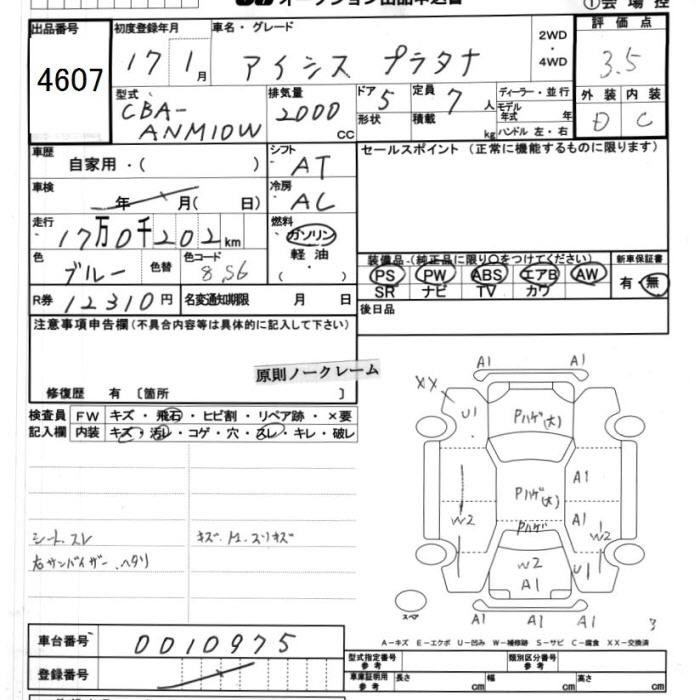 出品番号 初度登録年月 車名・グレード 2WD・4WD 評価点
4607 17年1月 アイシス プラタナ 3.5
型式 排気量 ドア 定員 ディーラー・並行 外装 内装
CBA-ANM10W 2000cc 5 7人 モデル年式 年 D C
形状 積載 kg ハンドル 左・右
車歴 自家用・( ) シフト AT セールスポイント(正常に機能するものに限ります)
車検 年 月( 日) 冷房 AC
走行 17万0千202km 燃料 ガソリン 軽油 ( ・ )
色 ブルー 色替 色コード 8S6
装備品-(純正品に限り○をつけてください) 新車保証書
PS PW ABS エアB AW 有・無
SR ナビ TV カワ
R券 12310円 名変通知期限 月 日 後日品
注意事項申告欄(不具合内容等は具体的に記入して下さい)
原則ノークレーム
修復歴 有 〔箇所 〕
検査員 FW キズ・飛石・ヒビ割・リペア跡・×要
記入欄 内装 キズ・汚レ・コゲ・穴・スレ・キレ・破レ
シートスレ
右サンバイザーヘタリ
A1 A1
XX
U1 Pハゲ(大)
A1
Pハゲ(大)
W2 Pハゲ A1 W2
W2 A1 U1
A1 A1 A1
スペア 3
A-キズ E-エクボ U-凹み W-補修跡 S-サビ C-腐食 XX-交換済
車台番号 0010975
登録番号
型式指定番号 参考 類別区分番号 参考
車庫証明用 参考 長さ cm 幅 cm 高さ cm